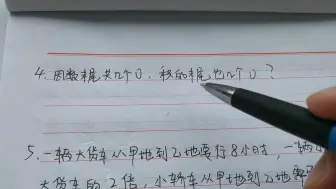 4. 因数末尾共几个0,积的末尾也几个0?
5. 一辆大货车从甲地到乙地要行8小时,一辆
大货车的2倍,小轿车从甲地到乙地要